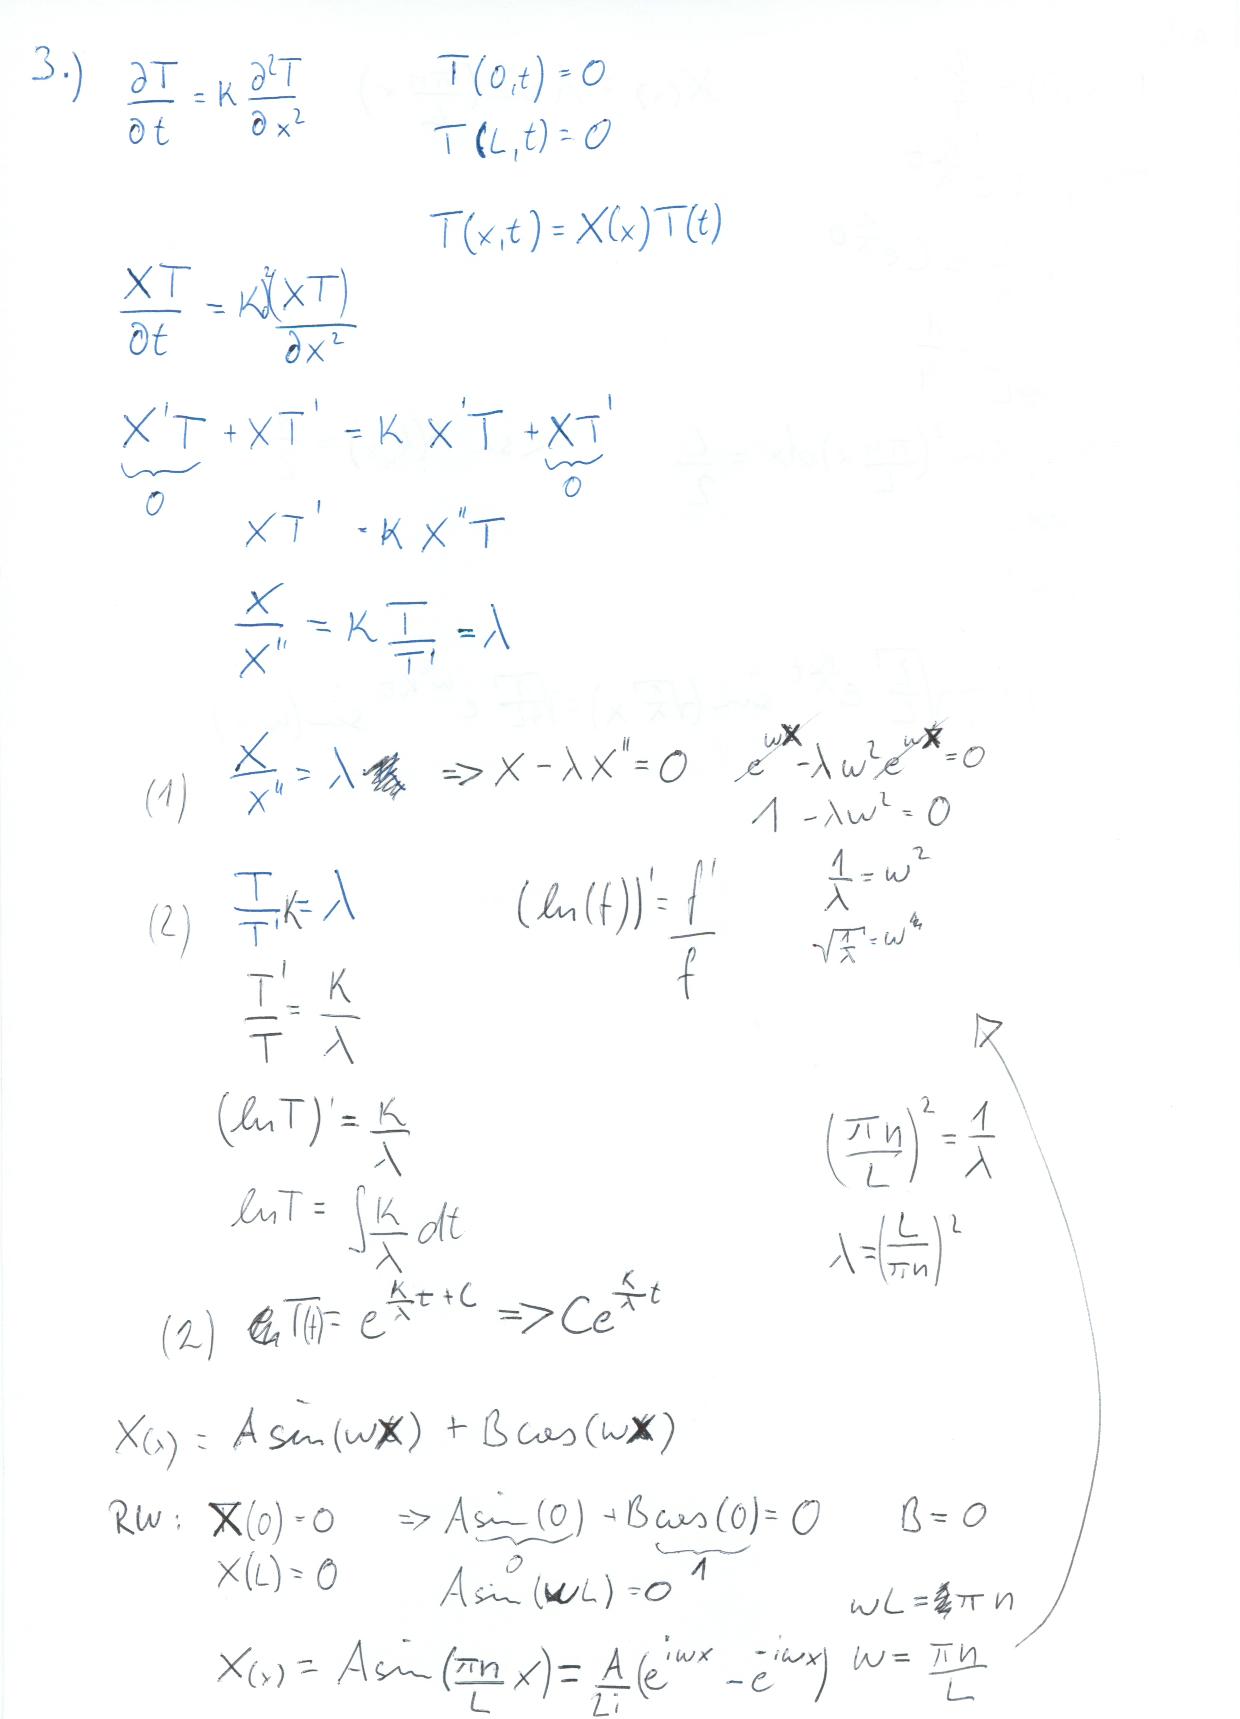 3.) ∂T/∂t = K ∂²T/∂x²    T(0,t) = 0
T(L,t) = 0
T(x,t) = X(x)T(t)
XT/∂t = K ∂²(XT)/∂x²
X'T + XT' = K X'T + XT'
0    0
XT' = K X''T
X/X'' = K T/T' = λ
(1) X/X'' = λ => X - λX'' = 0    e^{wx} - λw²e^{wx} = 0
1 - λw² = 0
(2) T/T' K = λ    (ln(f))' = f'/f    1/λ = w²
√(1/λ) = w
T'/T = K/λ
(ln T)' = K/λ    (πn/L)² = 1/λ
ln T = ∫ K/λ dt    λ = (L/πn)²
(2) T(t) = e^{K/λ t + C} => Ce^{K/λ t}
X(x) = A sin(wx) + B cos(wx)
RW: X(0) = 0 => A sin(0) + B cos(0) = 0    B = 0
0    1
X(L) = 0    A sin(wL) = 0    wL = πn
X(x) = A sin(πn/L x) = A/2i (e^{iwx} - e^{-iwx})    w = πn/L